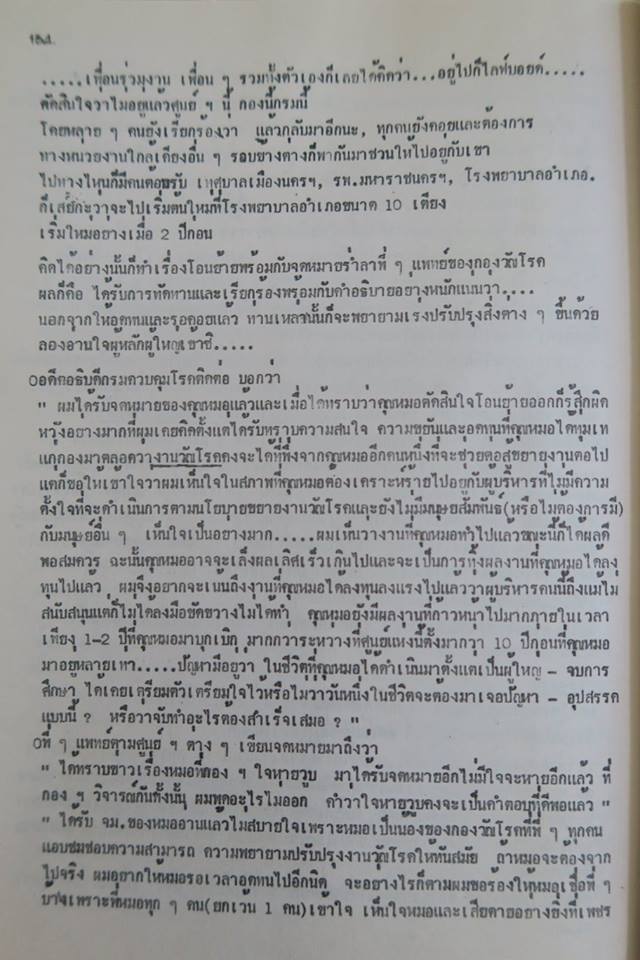 .....เพื่อนร่วมงาน เพื่อน ๆ รวมทั้งตัวเองก็เลยได้คิดว่า...อยู่ไปก็ไลฟ์บอยด์.....
ตัดสินใจว่าไม่อยู่แล้วศูนย์ ฯ นี้ กองนี้กรมนี้
โดยหลาย ๆ คนยังเรียกร้องว่า แล้วกลับมาอีกนะ, ทุกคนยังคอยและต้องการ
ทางหน่วยงานใกล้เคียงอื่น ๆ รอบข้างต่างก็พากันมาชวนให้ไปอยู่กับเขา
ไปทางไหนก็มีคนต้อนรับ เทศบาลเมืองนครฯ, รพ.มหาราชนครฯ, โรงพยาบาลอำเภอ.
ก็เลยกะว่าจะไปเริ่มต้นใหม่ที่โรงพยาบาลอำเภอขนาด 10 เตียง
เริ่มใหม่อย่างเมื่อ 2 ปีก่อน
คิดได้อย่างนั้นก็ทำเรื่องโอนย้ายพร้อมกับจดหมายร่ำลาพี่ ๆ แพทย์ของกองวัณโรค
ผลก็คือ ได้รับการทัดทานและเรียกร้องพร้อมกับคำอธิบายอย่างหนักแน่นว่า....
นอกจากให้อดทนและรอคอยแล้ว ท่านเหล่านั้นก็จะพยายามเร่งปรับปรุงสิ่งต่าง ๆ ขึ้นด้วย
ลองอ่านใจผู้หลักผู้ใหญ่เขาซิ.....
๐อดีตอธิบดีกรมควบคุมโรคติดต่อ บอกว่า
" ผมได้รับจดหมายของคุณหมอแล้วและเมื่อได้ทราบว่าคุณหมอตัดสินใจโอนย้ายออกก็รู้สึกผิด
หวังอย่างมากที่ผมเคยคิดตั้งแต่ได้รับทราบความสนใจ ความขยันและอดทนที่คุณหมอได้ทุ่มเท
แก่กองมาตลอดว่างานวัณโรคคงจะได้ที่พึ่งจากคุณหมออีกคนหนึ่งที่จะช่วยต่อสู้ขยายงานต่อไป
แต่ก็ขอให้เข้าใจว่าผมเห็นใจในสภาพที่คุณหมอต้องเคราะห์ร้ายไปอยู่กับผู้บริหารที่ไม่มีความ
ตั้งใจที่จะดำเนินการตามนโยบายขยายงานวัณโรคและยังไม่มีมนุษย์สัมพันธ์(หรือไม่ต้องการมี)
กับมนุษย์อื่น ๆ เห็นใจเป็นอย่างมาก.....ผมเห็นว่างานที่คุณหมอทำไปแล้วขณะนี้ก็ได้ผลดี
พอสมควร ฉะนั้นคุณหมออาจจะเล็งผลเลิศเร็วเกินไปและจะเป็นการทิ้งผลงานที่คุณหมอได้ลง
ทุนไปแล้ว ผมจึงอยากจะเน้นถึงงานที่คุณหมอได้ลงทุนลงแรงไปแล้วว่าผู้บริหารคนนี้ถึงแม้ไม่
สนับสนุนแต่ก็ไม่ได้ลงมือขัดขวางไม่ได้ทำ คุณหมอยังมีผลงานที่ก้าวหน้าไปมากภายในเวลา
เพียง 1-2 ปีที่คุณหมอมาบุกเบิก มากกว่าระหว่างที่ศูนย์แห่งนี้ตั้งมากว่า 10 ปีก่อนที่คุณหมอ
มาอยู่หลายเท่า.....ปัญหามีอยู่ว่า ในชีวิตที่คุณหมอได้ดำเนินมาตั้งแต่เป็นผู้ใหญ่ - จบการ
ศึกษา ได้เคยเตรียมตัวเตรียมใจไว้หรือไม่ว่าวันหนึ่งในชีวิตจะต้องมาเจอปัญหา - อุปสรรค
แบบนี้ ? หรือว่าจับทำอะไรต้องสำเร็จเสมอ ? "
๐พี่ ๆ แพทย์ตามศูนย์ ฯ ต่าง ๆ เขียนจดหมายมาถึงว่า
" ได้ทราบข่าวเรื่องหมอที่กอง ฯ ใจหายวูบ มาได้รับจดหมายอีกไม่มีใจจะหายอีกแล้ว ที่
กอง ฯ วิจารณ์กันทั้งนั้น ผมพูดอะไรไม่ออก คำว่าใจหายวูบคงจะเป็นคำตอบที่ดีพอแล้ว "
" ได้รับ จม.ของหมออ่านแล้วไม่สบายใจเพราะหมอเป็นน้องของกองวัณโรคที่พี่ ๆ ทุกคน
แอบชมชอบความสามารถ ความพยายามปรับปรุงงานวัณโรคให้ทันสมัย ถ้าหมอจะต้องจาก
ไปจริง ผมอยากให้หมอรอเวลาอดทนไปอีกนิด จะอย่างไรก็ตามผมขอร้องให้หมอเชื่อพี่ ๆ
บ้างเพราะพี่หมอทุก ๆ คน(ยกเว้น 1 คน)เข้าใจ เห็นใจหมอและเสียดายอย่างยิ่งที่เพชร